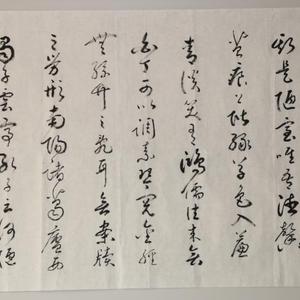 斯是陋室唯吾德馨
苔痕上階綠草色入簾
青談笑有鴻儒往來無
白丁可以調素琴閱金經
無絲竹之亂耳無案牘
之勞形南陽諸葛廬西
蜀子雲亭孔子云何陋